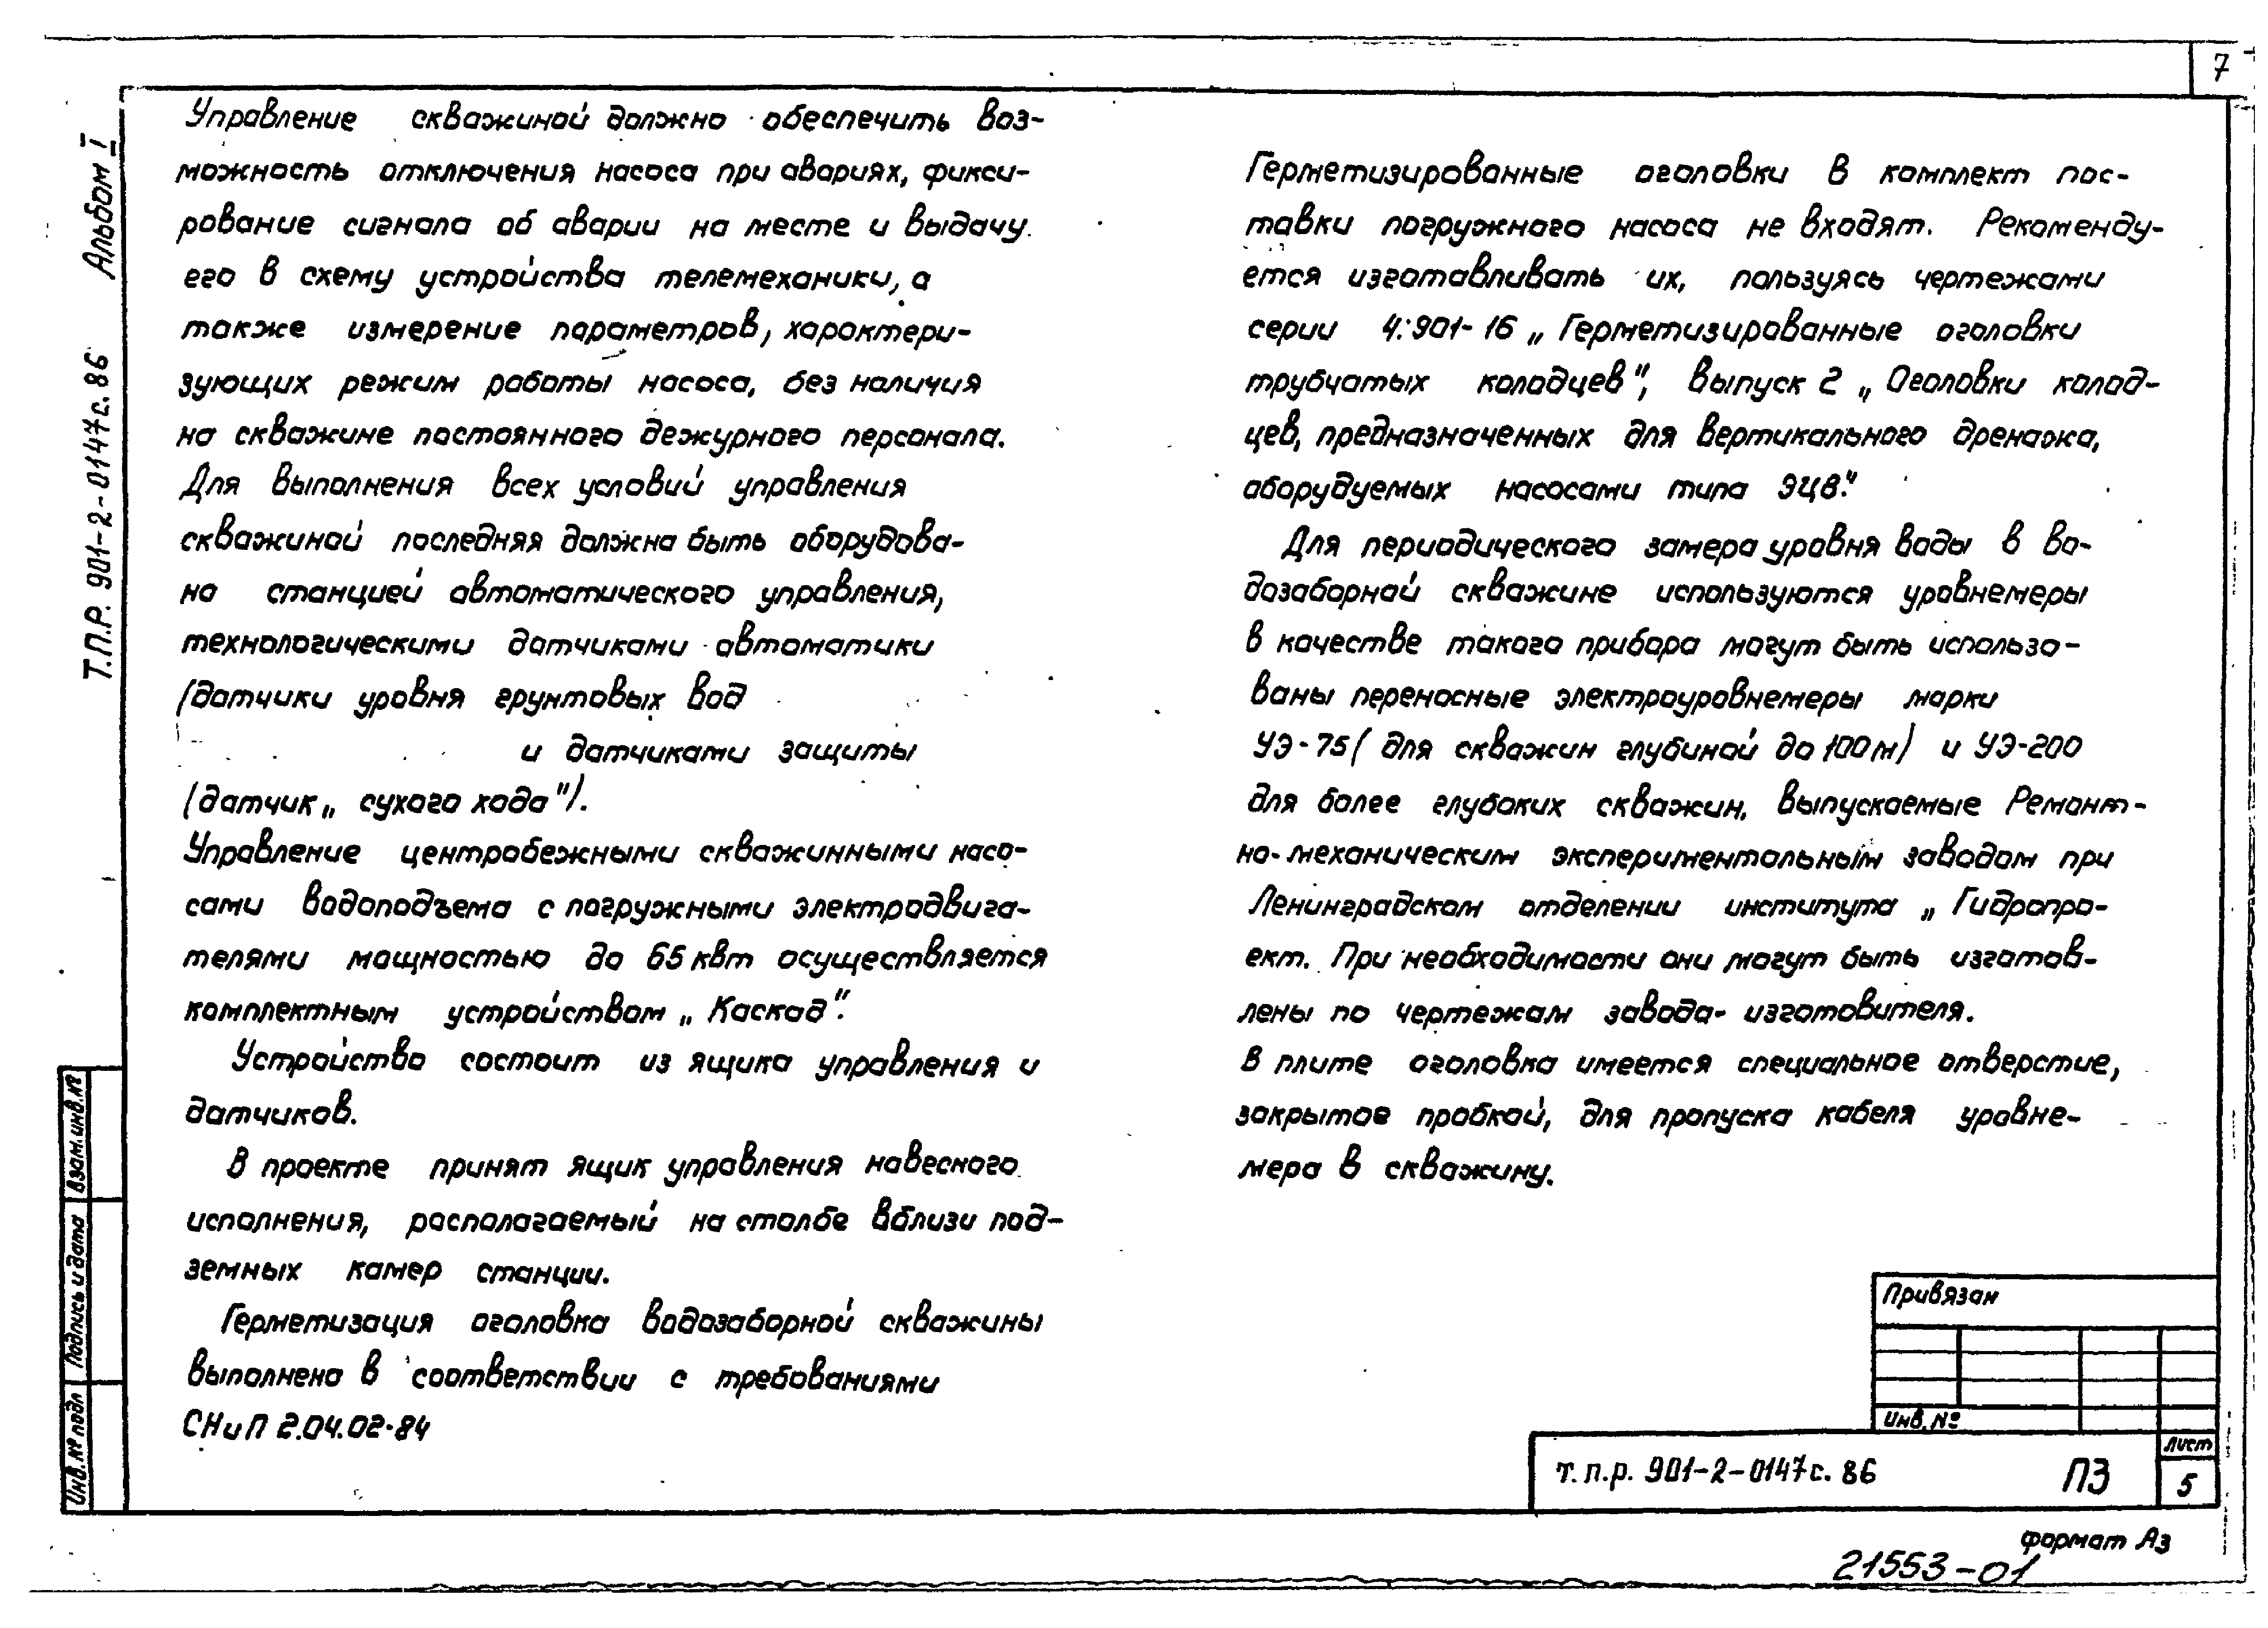 7
Альбом I
Т.П.Р. 901-2-0147с.86
Управление скважиной должно обеспечить воз-
можность отключения насоса при авариях, фикси-
рование сигнала об аварии на месте и выдачу
его в схему устройства телемеханики, а
также измерение параметров, характери-
зующих режим работы насоса, без наличия
на скважине постоянного дежурного персонала.
Для выполнения всех условий управления
скважиной последняя должна быть оборудова-
на станцией автоматического управления,
технологическими датчиками автоматики
(датчики уровня грунтовых вод
и датчиками защиты
(датчик „ сухого хода").
Управление центробежными скважинными насо-
сами водоподъема с погружными электродвига-
телями мощностью до 65 квт осуществляется
комплектным устройством „ Каскад".
Устройство состоит из ящика управления и
датчиков.
В проекте принят ящик управления навесного
исполнения, располагаемый на столбе вблизи под-
земных камер станции.
Герметизация оголовка водозаборной скважины
выполнена в соответствии с требованиями
СНиП 2.04.02-84
Герметизированные оголовки в комплект пос-
тавки погружного насоса не входят. Рекоменду-
ется изготавливать их, пользуясь чертежами
серии 4.901-16 „ Герметизированные оголовки
трубчатых колодцев", Выпуск 2 „ Оголовки колод-
цев, предназначенных для вертикального дренажа,
оборудуемых насосами типа ЭЦВ."
Для периодического замера уровня воды в во-
дозаборной скважине используются уровнемеры
в качестве такого прибора могут быть использо-
ваны переносные электроуровнемеры марки
УЭ-75 ( для скважин глубиной до 100 м) и УЭ-200
для более глубоких скважин, выпускаемые Ремонт-
но-механическим экспериментальным заводом при
Ленинградском отделении института „ Гидропро-
ект. При необходимости они могут быть изготов-
лены по чертежам завода-изготовителя.
В плите оголовка имеется специальное отверстие,
закрытое пробкой, для пропуска кабеля уровне-
мера в скважину.
Взам.инв.№
Подпись и дата
Инв.№ подл
Привязан
Инв.№
т.п.р. 901-2-0147с. 86
ПЗ
Лист
5
формат А3
21553-01